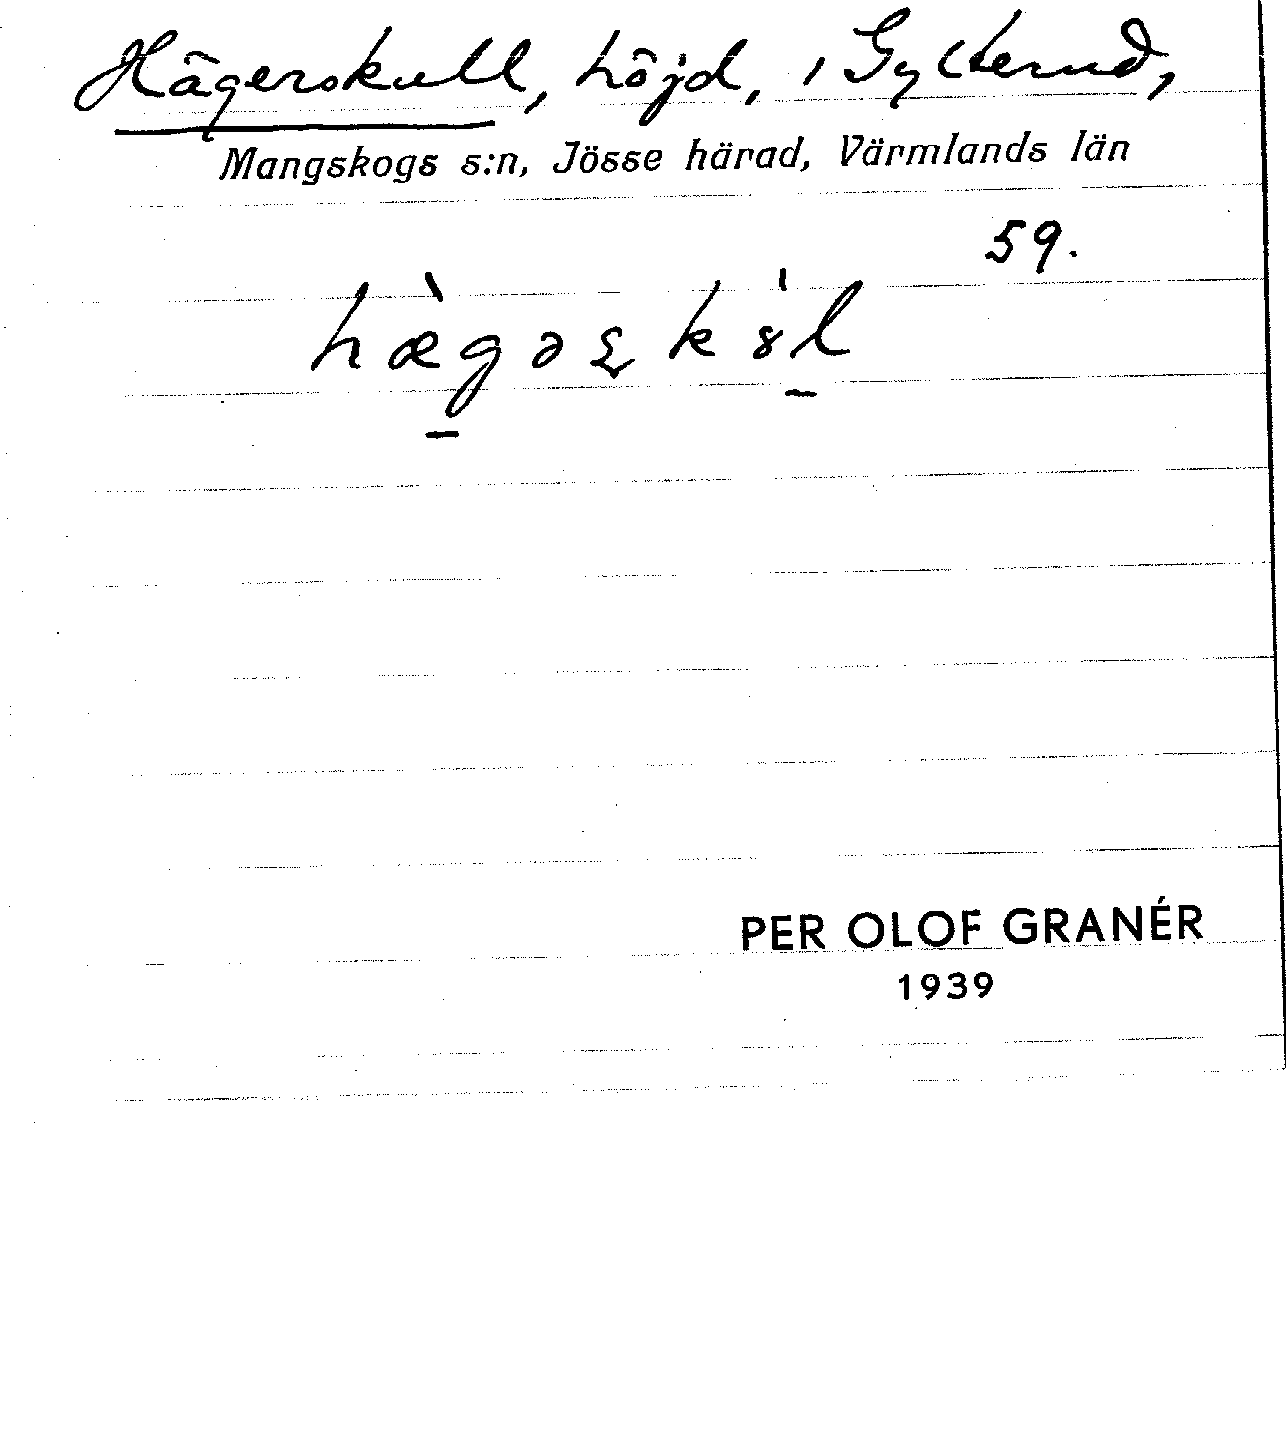 Hägerskull, höjd, i Gylterud,
Mangskogs s:n, Jösse härad, Värmlands län
59.
PER OLOF GRANÉR
1939